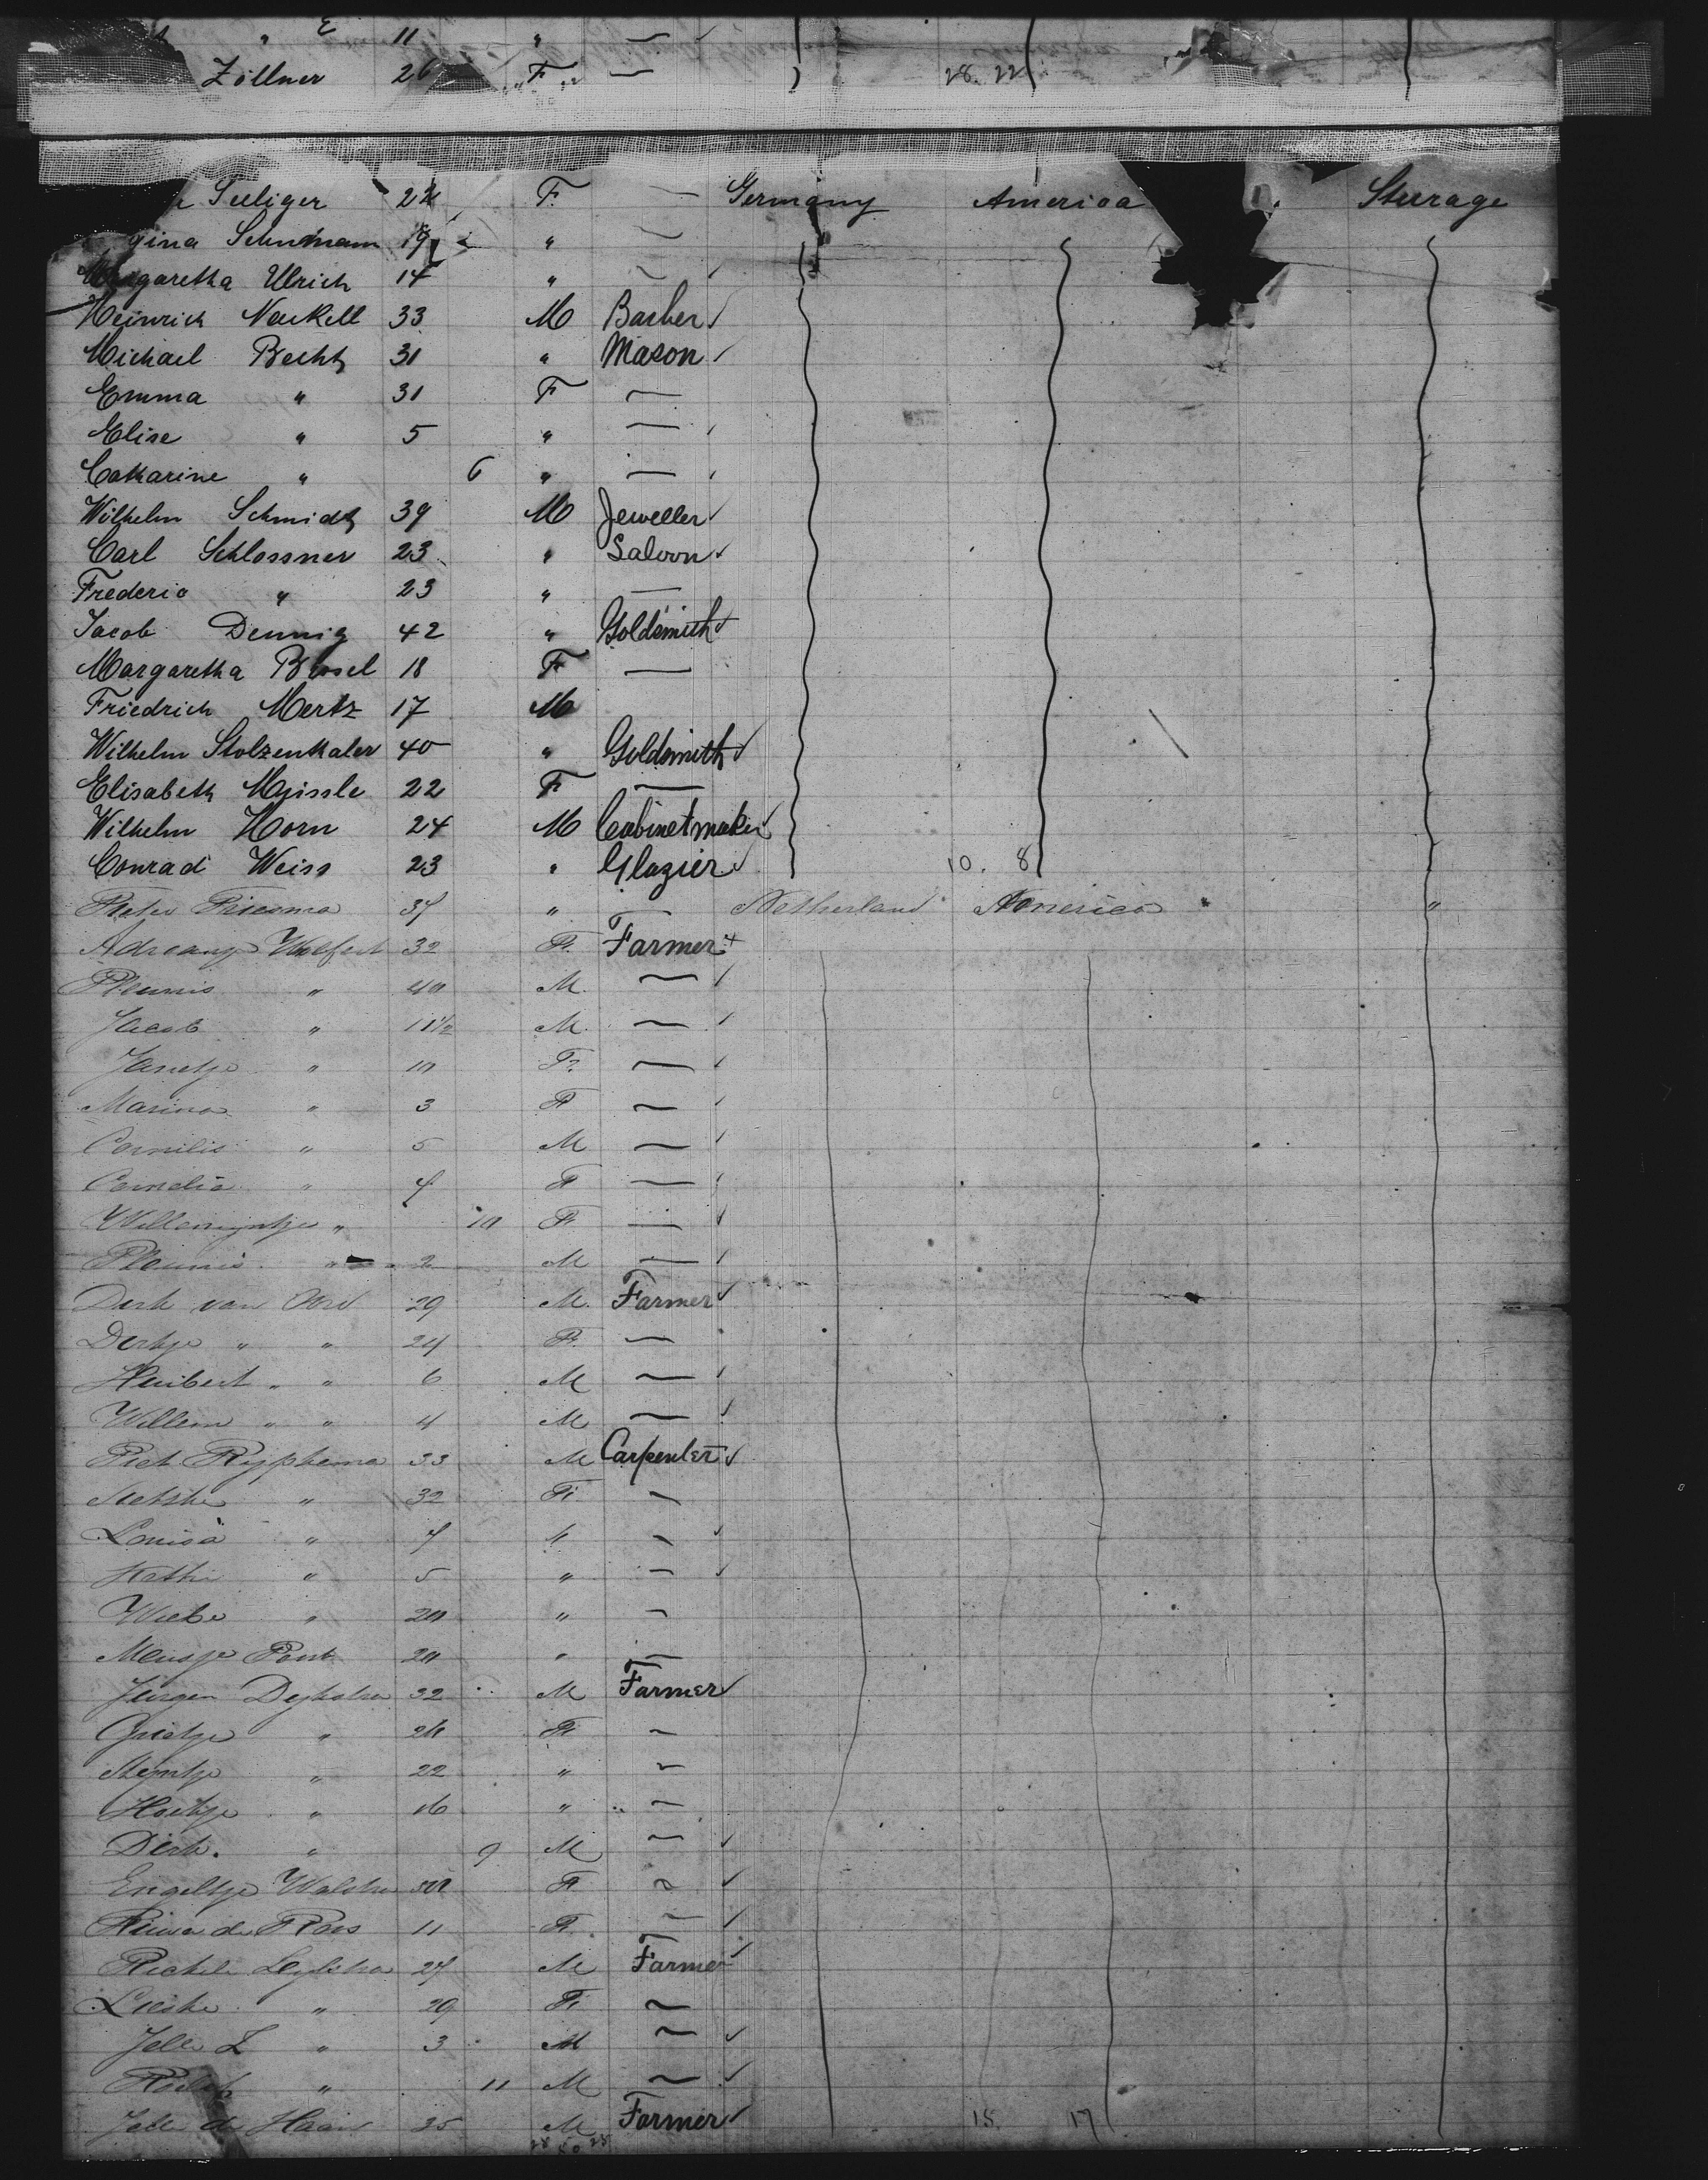 " E 11 " —
Zöllner 26 F — 28. 22
Seeliger 22 F. — Germany America Sterage
gina Schumann 19 " —
Margaretha Ulrich 14 " — ✓
Heinrich 33 M Barber ✓
Michael Becht 31 " Mason ✓
Emma " 31 F —
Elise " 5 " — ✓
Catharine " 6 " — ✓
Wilhelm Schmidt 39 M Jeweller ✓
Carl Schlossner 23 " Saloon ✓
Frederic " 23 " —
Jacob Dennig 42 " Goldsmith ✓
Margaretha 18 F —
Friedrich Mertz 17 M
Wilhelm Stolzenthaler 40 " Goldsmith ✓
Elisabeth 22 F —
Wilhelm Horn 24 M Cabinetmaker ✓
Conrad Weiss 23 " Glazier ✓ 10. 8
Pieter 37 " — Netherland America "
32 F. Farmer +
Pleunis " 40 M. — ✓
Jacob " 11½ M. — ✓
Janetje " 10 F. — ✓
Marina " 3 F — ✓
Cornilis " 5 M — ✓
Cornelia " 7 F — ✓
Willemyntje " 10 F — ✓
Pleunis " 2 M — ✓
Derk van 29 M. Farmer ✓
Dertje " " 24 F. —
Huibert " " 6 M — ✓
Willem " " 4 M — ✓
Piet Rypkema 33 M Carpenter ✓
" 32 F. —
Louisa " 7 " — ✓
" 5 " — ✓
Wiebe " 20 " —
20 " —
Jurgen Dykstra 32 M Farmer ✓
Grietje " 26 F —
" 22 " —
" 16 " —
Dirk. " 9 M — ✓
Engeltje Walstra F — ✓
11 F. — ✓
27 M Farmer ✓
" 29 F. —
Jelle L " 3 M — ✓
" 11 M — ✓
Jelle de Haan 25 M Farmer ✓ 15. 17